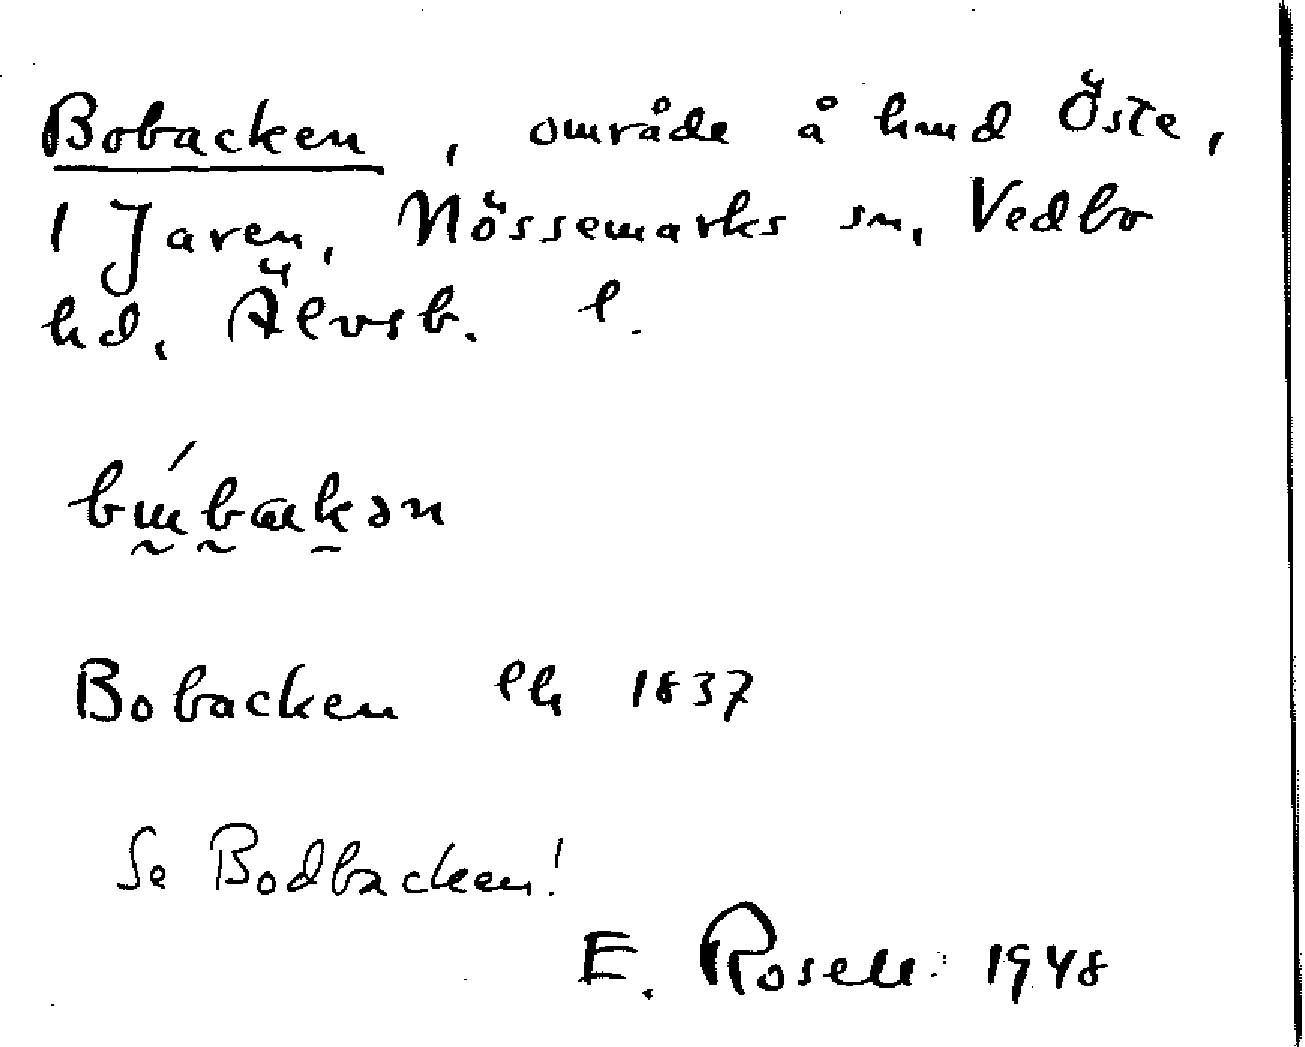 Bobacken, område å hmd Öste,
1 Jaren, Nössemarks sn, Vedbo
hd, Älvsb. l.
Bobacken lh 1837
Se Bodbacken!
E. Rosell 1948